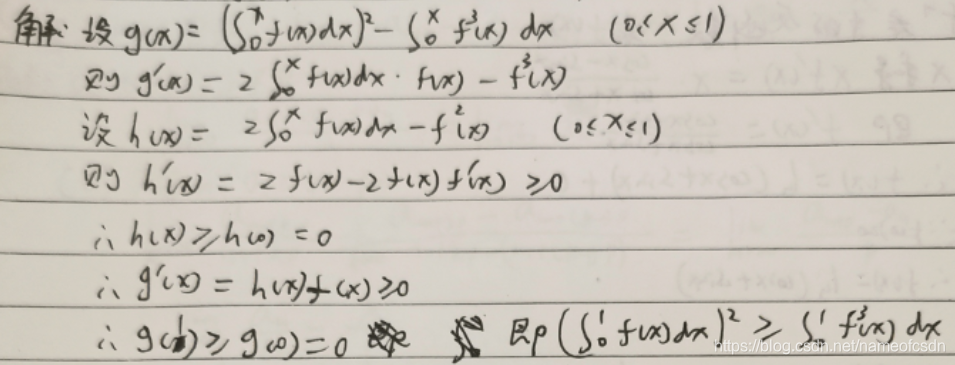 解: 设 g(x) = (∫₀ˣ f(x)dx)² - ∫₀ˣ f³(x) dx (0≤x≤1)
则 g'(x) = 2 ∫₀ˣ f(x)dx · f(x) - f³(x)
设 h(x) = 2∫₀ˣ f(x)dx - f²(x) (0≤x≤1)
则 h'(x) = 2f(x) - 2f(x)f'(x) ≥0
∴ h(x) ≥ h(0) = 0
∴ g'(x) = h(x)f(x) ≥0
∴ g(1) ≥ g(0) = 0 即 (∫₀¹ f(x)dx)² ≥ ∫₀¹ f³(x) dx
https://blog.csdn.net/nameofcsdn